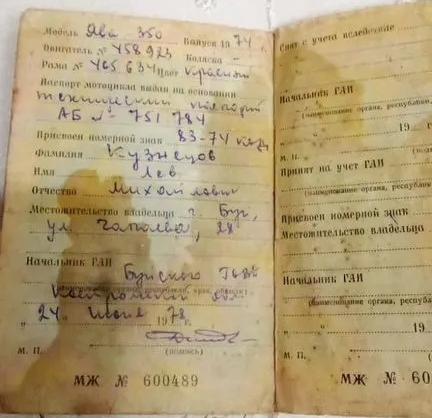 Модель Ява 350 Выпуск 1974 г.
Двигатель № 458923 Коляска -
Рама № 465634 Цвет красный
Паспорт мотоцикла выдан на основании
технический
АБ № 751784
Присвоен номерной знак 83-74
Фамилия Кузнецов
Имя Лев
Отчество Михайлович
Местожительство владельца г. Буй,
ул. Чапаева, 28
Начальник ГАИ Буйского
(наименование органа, республики, края, области)
24 июля 1978 г.
М. П. (подпись)
МЖ № 600489
Снят с учета вследствие
Начальник ГАИ
(наименование органа, республи
„ „ 19
М. П.
Принят на учет ГАИ
(наименование органа, республи
Присвоен номерной знак
Местожительство владельца
Начальник ГАИ
(наименование органа, республи
„ „ 19
М. П.
МЖ № 60